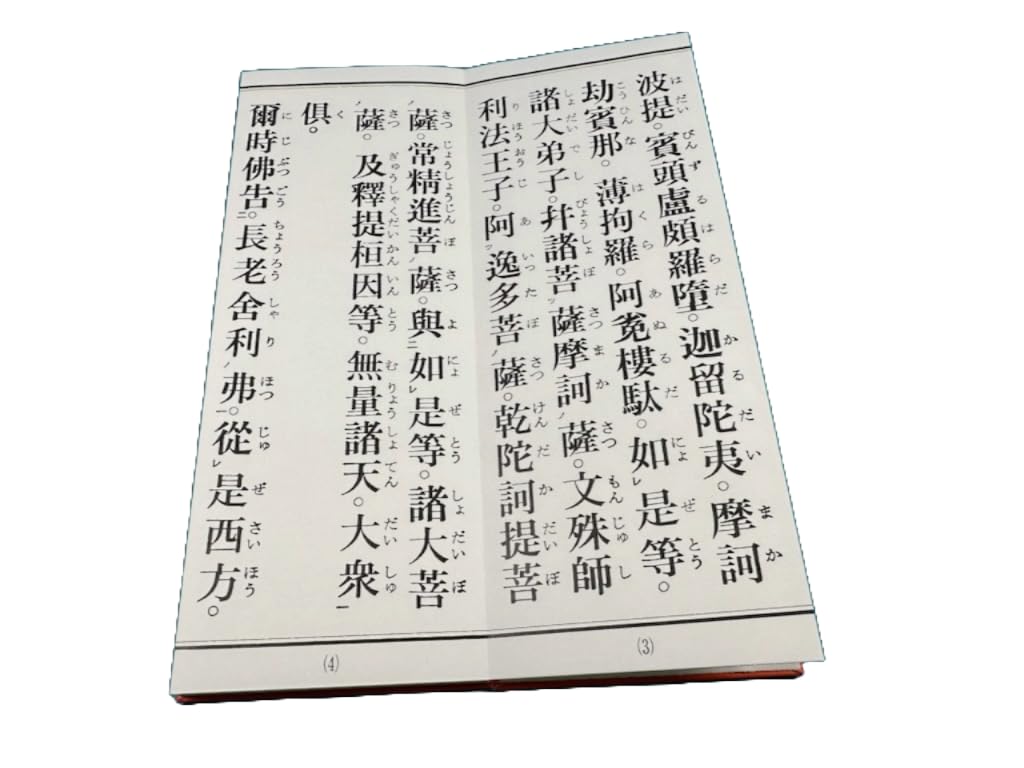 波提。賓頭盧頗羅墮。迦留陀夷。摩訶
劫賓那。薄拘羅。阿㝹樓駄。如是等。
諸大弟子。幷諸菩薩摩訶薩。文殊師
利法王子。阿逸多菩薩。乾陀訶提菩
薩。常精進菩薩。與如是等。諸大菩
薩。及釋提桓因等。無量諸天。大衆
俱。
爾時佛告。長老舍利弗。從是西方。
(3)
(4)